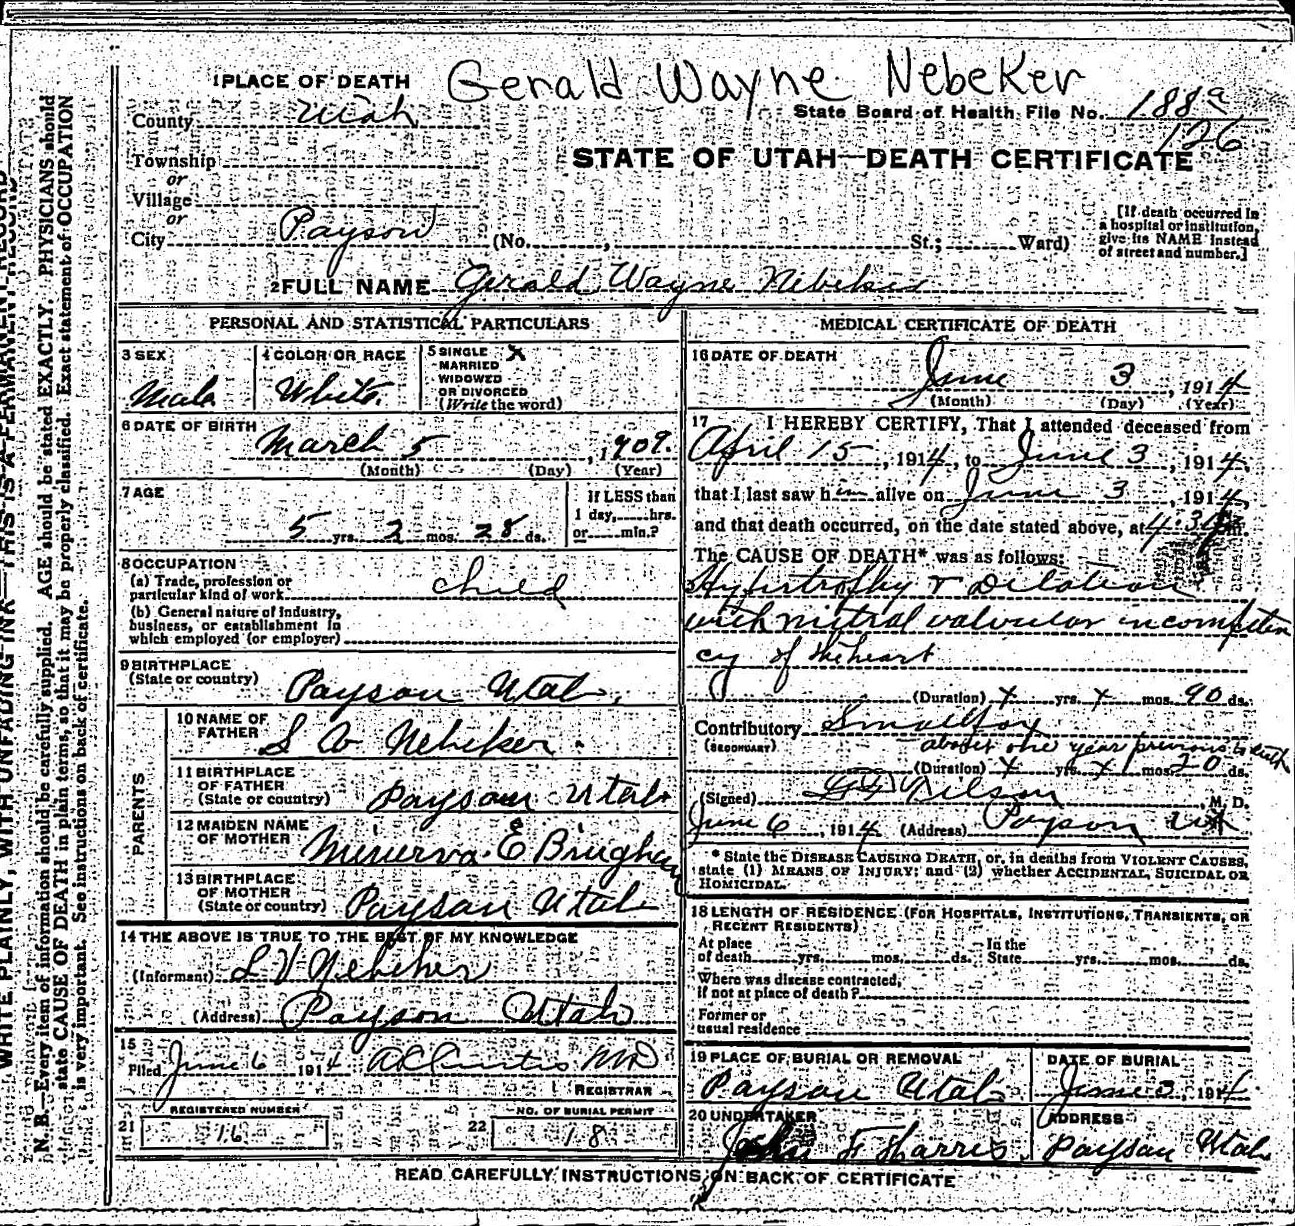 1 PLACE OF DEATH Gerald Wayne Nebeker
County Utah State Board of Health File No. 188a
126
Township
or
Village
or
City Payson (No. , St.; Ward)
STATE OF UTAH—DEATH CERTIFICATE
[If death occurred in
a hospital or institution,
give its NAME instead
of street and number.]
2 FULL NAME Gerald Wayne Nebeker
PERSONAL AND STATISTICAL PARTICULARS
3 SEX Male
4 COLOR OR RACE White
5 SINGLE X
MARRIED
WIDOWED
OR DIVORCED
(Write the word)
6 DATE OF BIRTH
March 5, 1909.
(Month) (Day) (Year)
7 AGE
5 yrs. 2 mos. 28 ds.
If LESS than
1 day, hrs.
or min.?
8 OCCUPATION
(a) Trade, profession or
particular kind of work child
(b) General nature of industry,
business, or establishment in
which employed (or employer)
9 BIRTHPLACE
(State or country) Payson Utah,
PARENTS
10 NAME OF
FATHER S V Nebeker.
11 BIRTHPLACE
OF FATHER
(State or country) Payson Utah
12 MAIDEN NAME
OF MOTHER Minerva E Brigham
13 BIRTHPLACE
OF MOTHER
(State or country) Payson Utah
14 THE ABOVE IS TRUE TO THE BEST OF MY KNOWLEDGE
(Informant) S V Nebeker
(Address) Payson Utah
15
Filed June 6 1914 A L Curtis MD
REGISTRAR
REGISTERED NUMBER
21 16
NO. OF BURIAL PERMIT
22 18
MEDICAL CERTIFICATE OF DEATH
16 DATE OF DEATH
June 3, 1914
(Month) (Day) (Year)
17 I HEREBY CERTIFY, That I attended deceased from
April 15, 1914, to June 3, 1914,
that I last saw him alive on June 3, 1914,
and that death occurred, on the date stated above, at 4:3 m.
The CAUSE OF DEATH* was as follows:
Hypertrophy & Dilation
with mitral valvular incompeten
cy of the heart
(Duration) x yrs. x mos. 90 ds.
Contributory Smallpox
(SECONDARY) about one year previous to death
(Duration) x yrs. x mos. 20 ds.
(Signed) Nelson, M. D.
June 6, 1914 (Address) Payson Ut
* State the DISEASE CAUSING DEATH, or, in deaths from VIOLENT CAUSES,
state (1) MEANS OF INJURY; and (2) whether ACCIDENTAL, SUICIDAL OR
HOMICIDAL.
18 LENGTH OF RESIDENCE (FOR HOSPITALS, INSTITUTIONS, TRANSIENTS, OR
RECENT RESIDENTS)
At place In the
of death yrs. mos. ds. State yrs. mos. ds.
Where was disease contracted,
if not at place of death?
Former or
usual residence
19 PLACE OF BURIAL OR REMOVAL DATE OF BURIAL
Payson Utah June 3, 1914.
20 UNDERTAKER ADDRESS
John F Harris. Payson Utah
READ CAREFULLY INSTRUCTIONS ON BACK OF CERTIFICATE
WRITE PLAINLY, WITH UNFADING INK—THIS IS A PERMANENT RECORD
N. B.—Every item of information should be carefully supplied. AGE should be stated EXACTLY. PHYSICIANS should
state CAUSE OF DEATH in plain terms, so that it may be properly classified. Exact statement of OCCUPATION
is very important. See instructions on back of certificate.